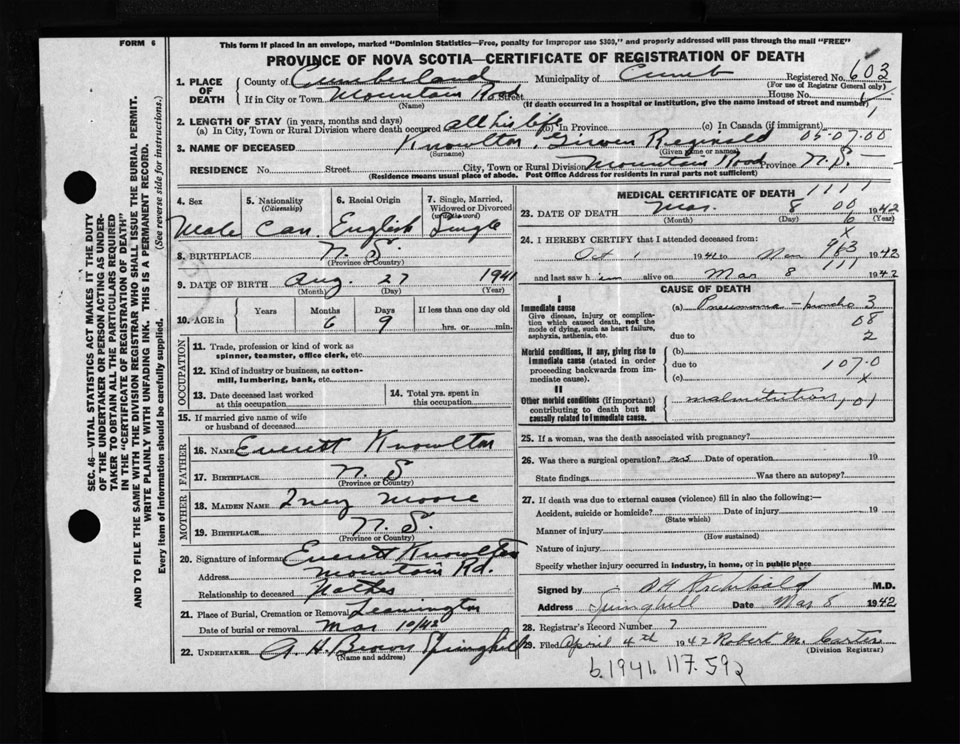 FORM 6
This form if placed in an envelope, marked "Dominion Statistics—Free, penalty for improper use $300," and properly addressed will pass through the mail "FREE"
PROVINCE OF NOVA SCOTIA—CERTIFICATE OF REGISTRATION OF DEATH
1. PLACE OF DEATH County of Cumberland Municipality of Cumb Registered No. 603
(For use of Registrar General only)
If in City or Town Mountain Road Street House No.
(Name) (If death occurred in a hospital or institution, give the name instead of street and number)
2. LENGTH OF STAY (in years, months and days)
(a) In City, Town or Rural Division where death occurred all his life (b) In Province (c) In Canada (if immigrant)
3. NAME OF DECEASED Knowlton, Reginald 05-07-00
(Surname) (Given name or names)
RESIDENCE No. Street City, Town or Rural Division Mountain Road Province N.S. —
(Residence means usual place of abode. Post Office Address for residents in rural parts not sufficient)
4. Sex 5. Nationality (Citizenship) 6. Racial Origin 7. Single, Married, Widowed or Divorced (write the word)
Male Can. English Single
8. BIRTHPLACE N. S.
(Province or Country)
9. DATE OF BIRTH Aug. 27 1941
(Month) (Day) (Year)
10. AGE in Years Months Days If less than one day old
6 9 hrs. or min.
OCCUPATION
11. Trade, profession or kind of work as spinner, teamster, office clerk, etc.
12. Kind of industry or business, as cotton-mill, lumbering, bank, etc.
13. Date deceased last worked at this occupation 14. Total yrs. spent in this occupation
15. If married give name of wife or husband of deceased
FATHER
16. NAME Everett Knowlton
17. BIRTHPLACE N. S
(Province or Country)
MOTHER
18. MAIDEN NAME Inez Moore
19. BIRTHPLACE N. S.
(Province or Country)
20. Signature of informant Everett Knowlton
Address Mountain Rd.
Relationship to deceased Father
21. Place of Burial, Cremation or Removal Leamington
Date of burial or removal Mar 10/42
22. UNDERTAKER A. H. Brown Springhill
(Name and address)
MEDICAL CERTIFICATE OF DEATH 1111
23. DATE OF DEATH Mar. 8 00 1942
(Month) (Day) 6 (Year)
x
24. I HEREBY CERTIFY that I attended deceased from:
Oct 1 1941 to Mar 8 963 1942
and last saw him alive on Mar 8 111 1942
CAUSE OF DEATH
I
Immediate cause
Give disease, injury or complication which caused death, not the mode of dying, such as heart failure, asphyxia, asthenia, etc.
(a) Pneumonia – broncho 3
08
due to 2
Morbid conditions, if any, giving rise to immediate cause (stated in order proceeding backwards from immediate cause).
(b)
due to 107.0
(c) x
II
Other morbid conditions (if important) contributing to death but not causally related to immediate cause.
malnutrition, 01
25. If a woman, was the death associated with pregnancy?
26. Was there a surgical operation? no Date of operation 19
State findings Was there an autopsy?
27. If death was due to external causes (violence) fill in also the following:—
Accident, suicide or homicide? Date of injury 19
(State which)
Manner of injury
(How sustained)
Nature of injury
Specify whether injury occurred in industry, in home, or in public place
Signed by Archibald M.D.
Address Springhill Date Mar 8 1942
28. Registrar's Record Number 7
29. Filed April 4th 1942 Robert M. Carter
(Division Registrar)
b.1941.117.592
SEC. 46—VITAL STATISTICS ACT MAKES IT THE DUTY
OF THE UNDERTAKER OR PERSON ACTING AS UNDER-
TAKER TO OBTAIN ALL THE PARTICULARS REQUIRED
IN THE "CERTIFICATE OF REGISTRATION OF DEATH"
AND TO FILE THE SAME WITH THE DIVISION REGISTRAR WHO SHALL ISSUE THE BURIAL PERMIT.
WRITE PLAINLY WITH UNFADING INK. THIS IS A PERMANENT RECORD.
Every item of information should be carefully supplied. (See reverse side for instructions.)